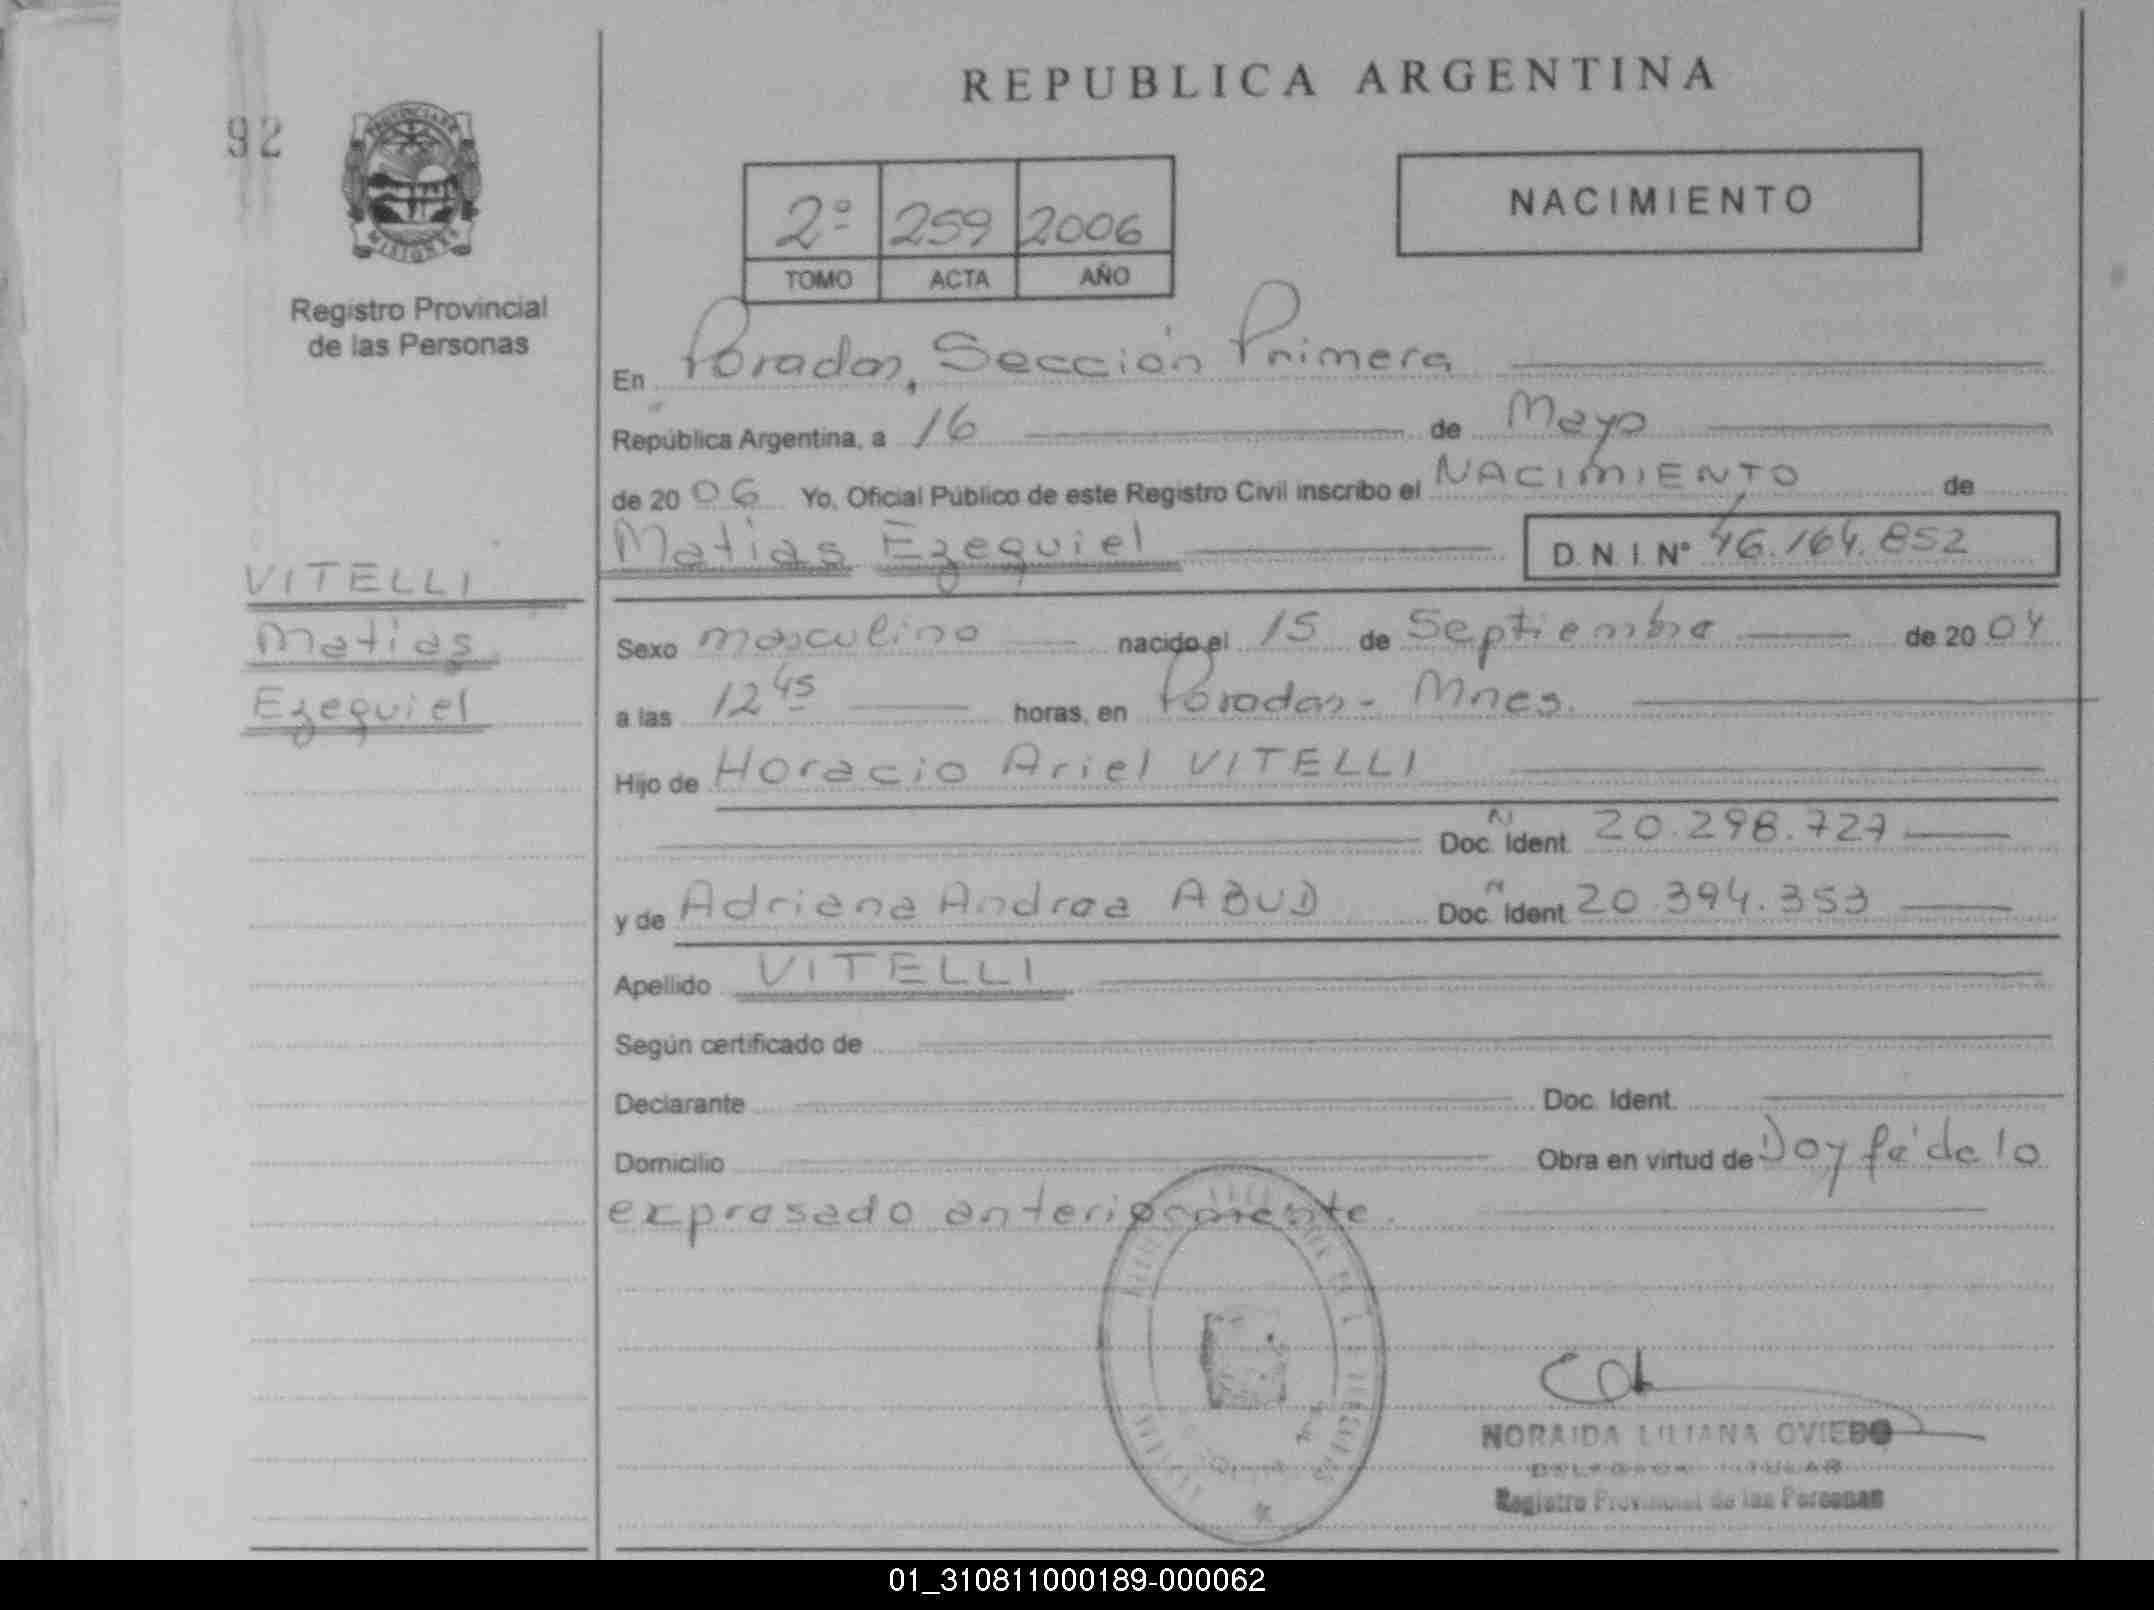 REPUBLICA ARGENTINA
92
PROVINCIA DE
MISIONES
Registro Provincial
de las Personas
2º 259 2006
TOMO ACTA AÑO
NACIMIENTO
En Posadas, Sección Primera
República Argentina, a 16 de Mayo
de 20 06 Yo, Oficial Público de este Registro Civil inscribo el NACIMIENTO de
Matias Ezequiel D.N.I. Nº 46.164.852
VITELLI
Matias
Ezequiel
Sexo masculino nacido el 15 de Septiembre de 20 04
a las 12 45 horas, en Posadas - Mnes.
Hijo de Horacio Ariel VITELLI
Doc. N Ident. 20.298.727
y de Adriana Andrea ABUD Doc. N Ident. 20.394.353
Apellido VITELLI
Según certificado de
Declarante Doc. Ident.
Domicilio Obra en virtud de Doy fé de lo
expresado anteriormente.
NORAIDA LILIANA OVIEDO
DELEGADA TITULAR
Registro Provincial de las Personas
01_310811000189-000062